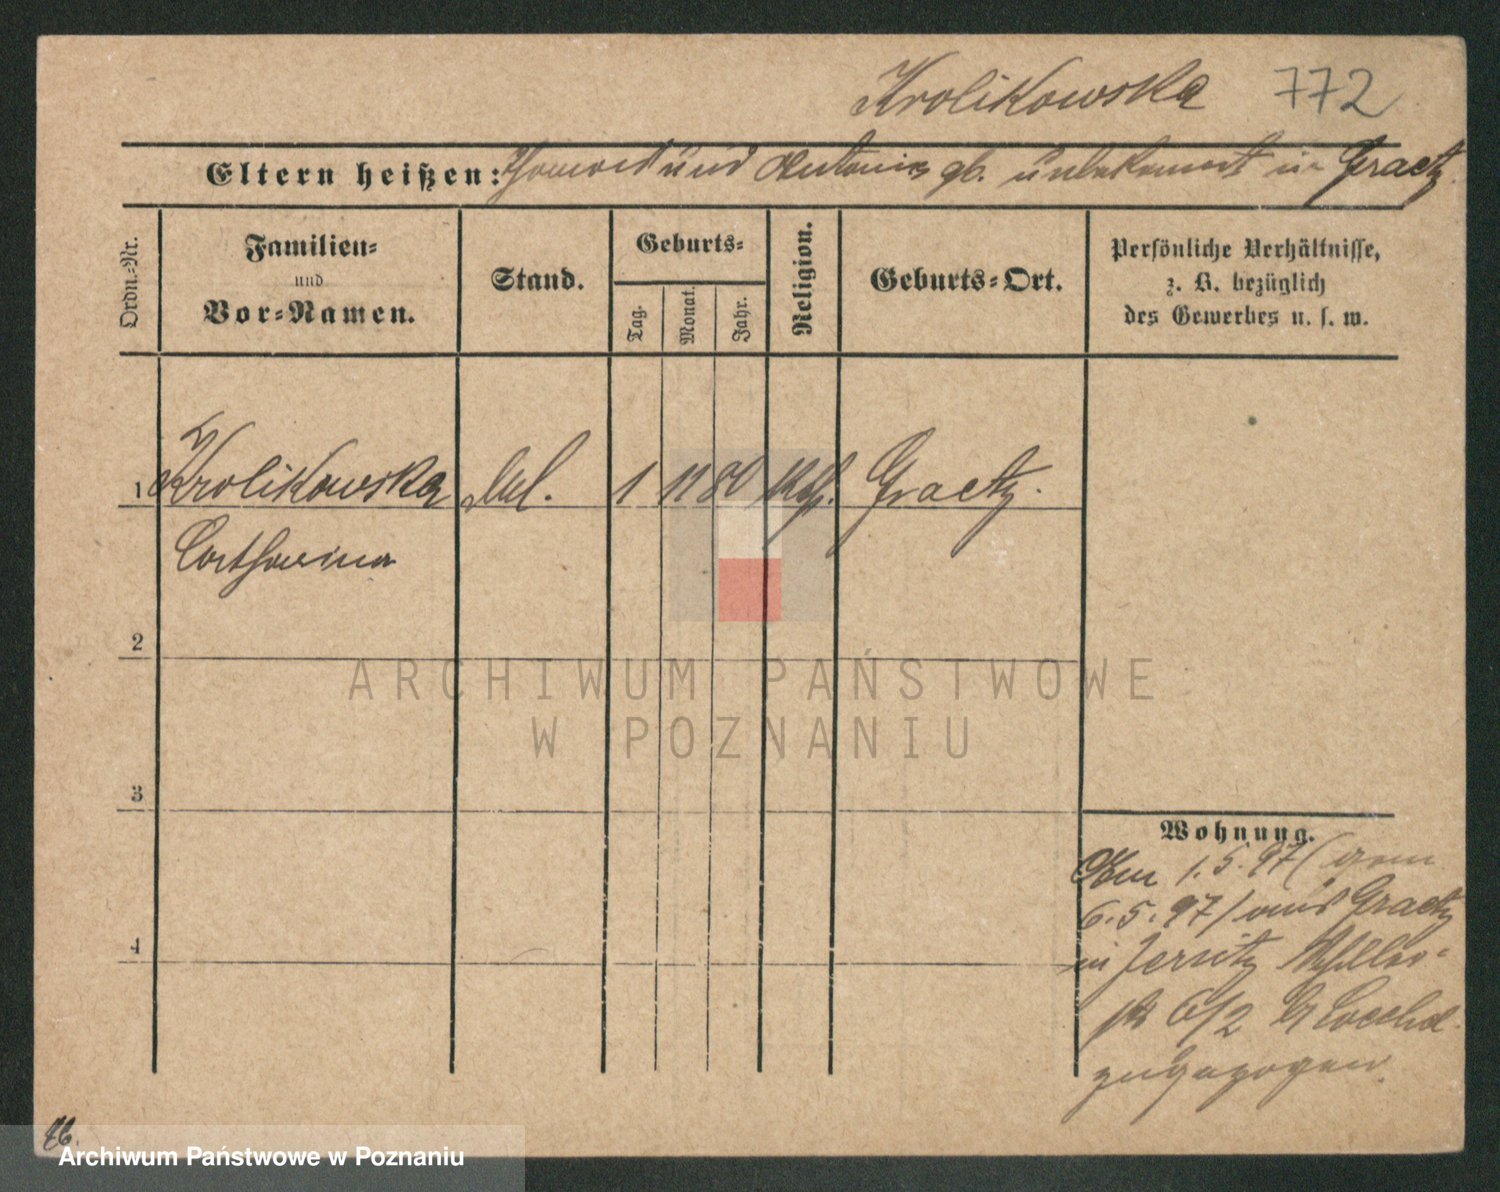 Krolikowska 772
Eltern heißen: Thomas und Antonie gb. unbekannt in Graetz
Ordn.-Nr.
Familien-
und
Vor-Namen.
Stand.
Geburts-
Tag.
Monat.
Jahr.
Religion.
Geburts-Ort.
Persönliche Verhältnisse,
z. B. bezüglich
des Gewerbes u. s. w.
1 Krolikowska led. 1 11 80 kath. Graetz.
Catharina
2
3
4
Wohnung.
Am 1.5.97 / gem
6.5.97 / aus Graetz
in Jersitz
6/2
zugezogen
ARCHIWUM PAŃSTWOWE
W POZNANIU
Archiwum Państwowe w Poznaniu